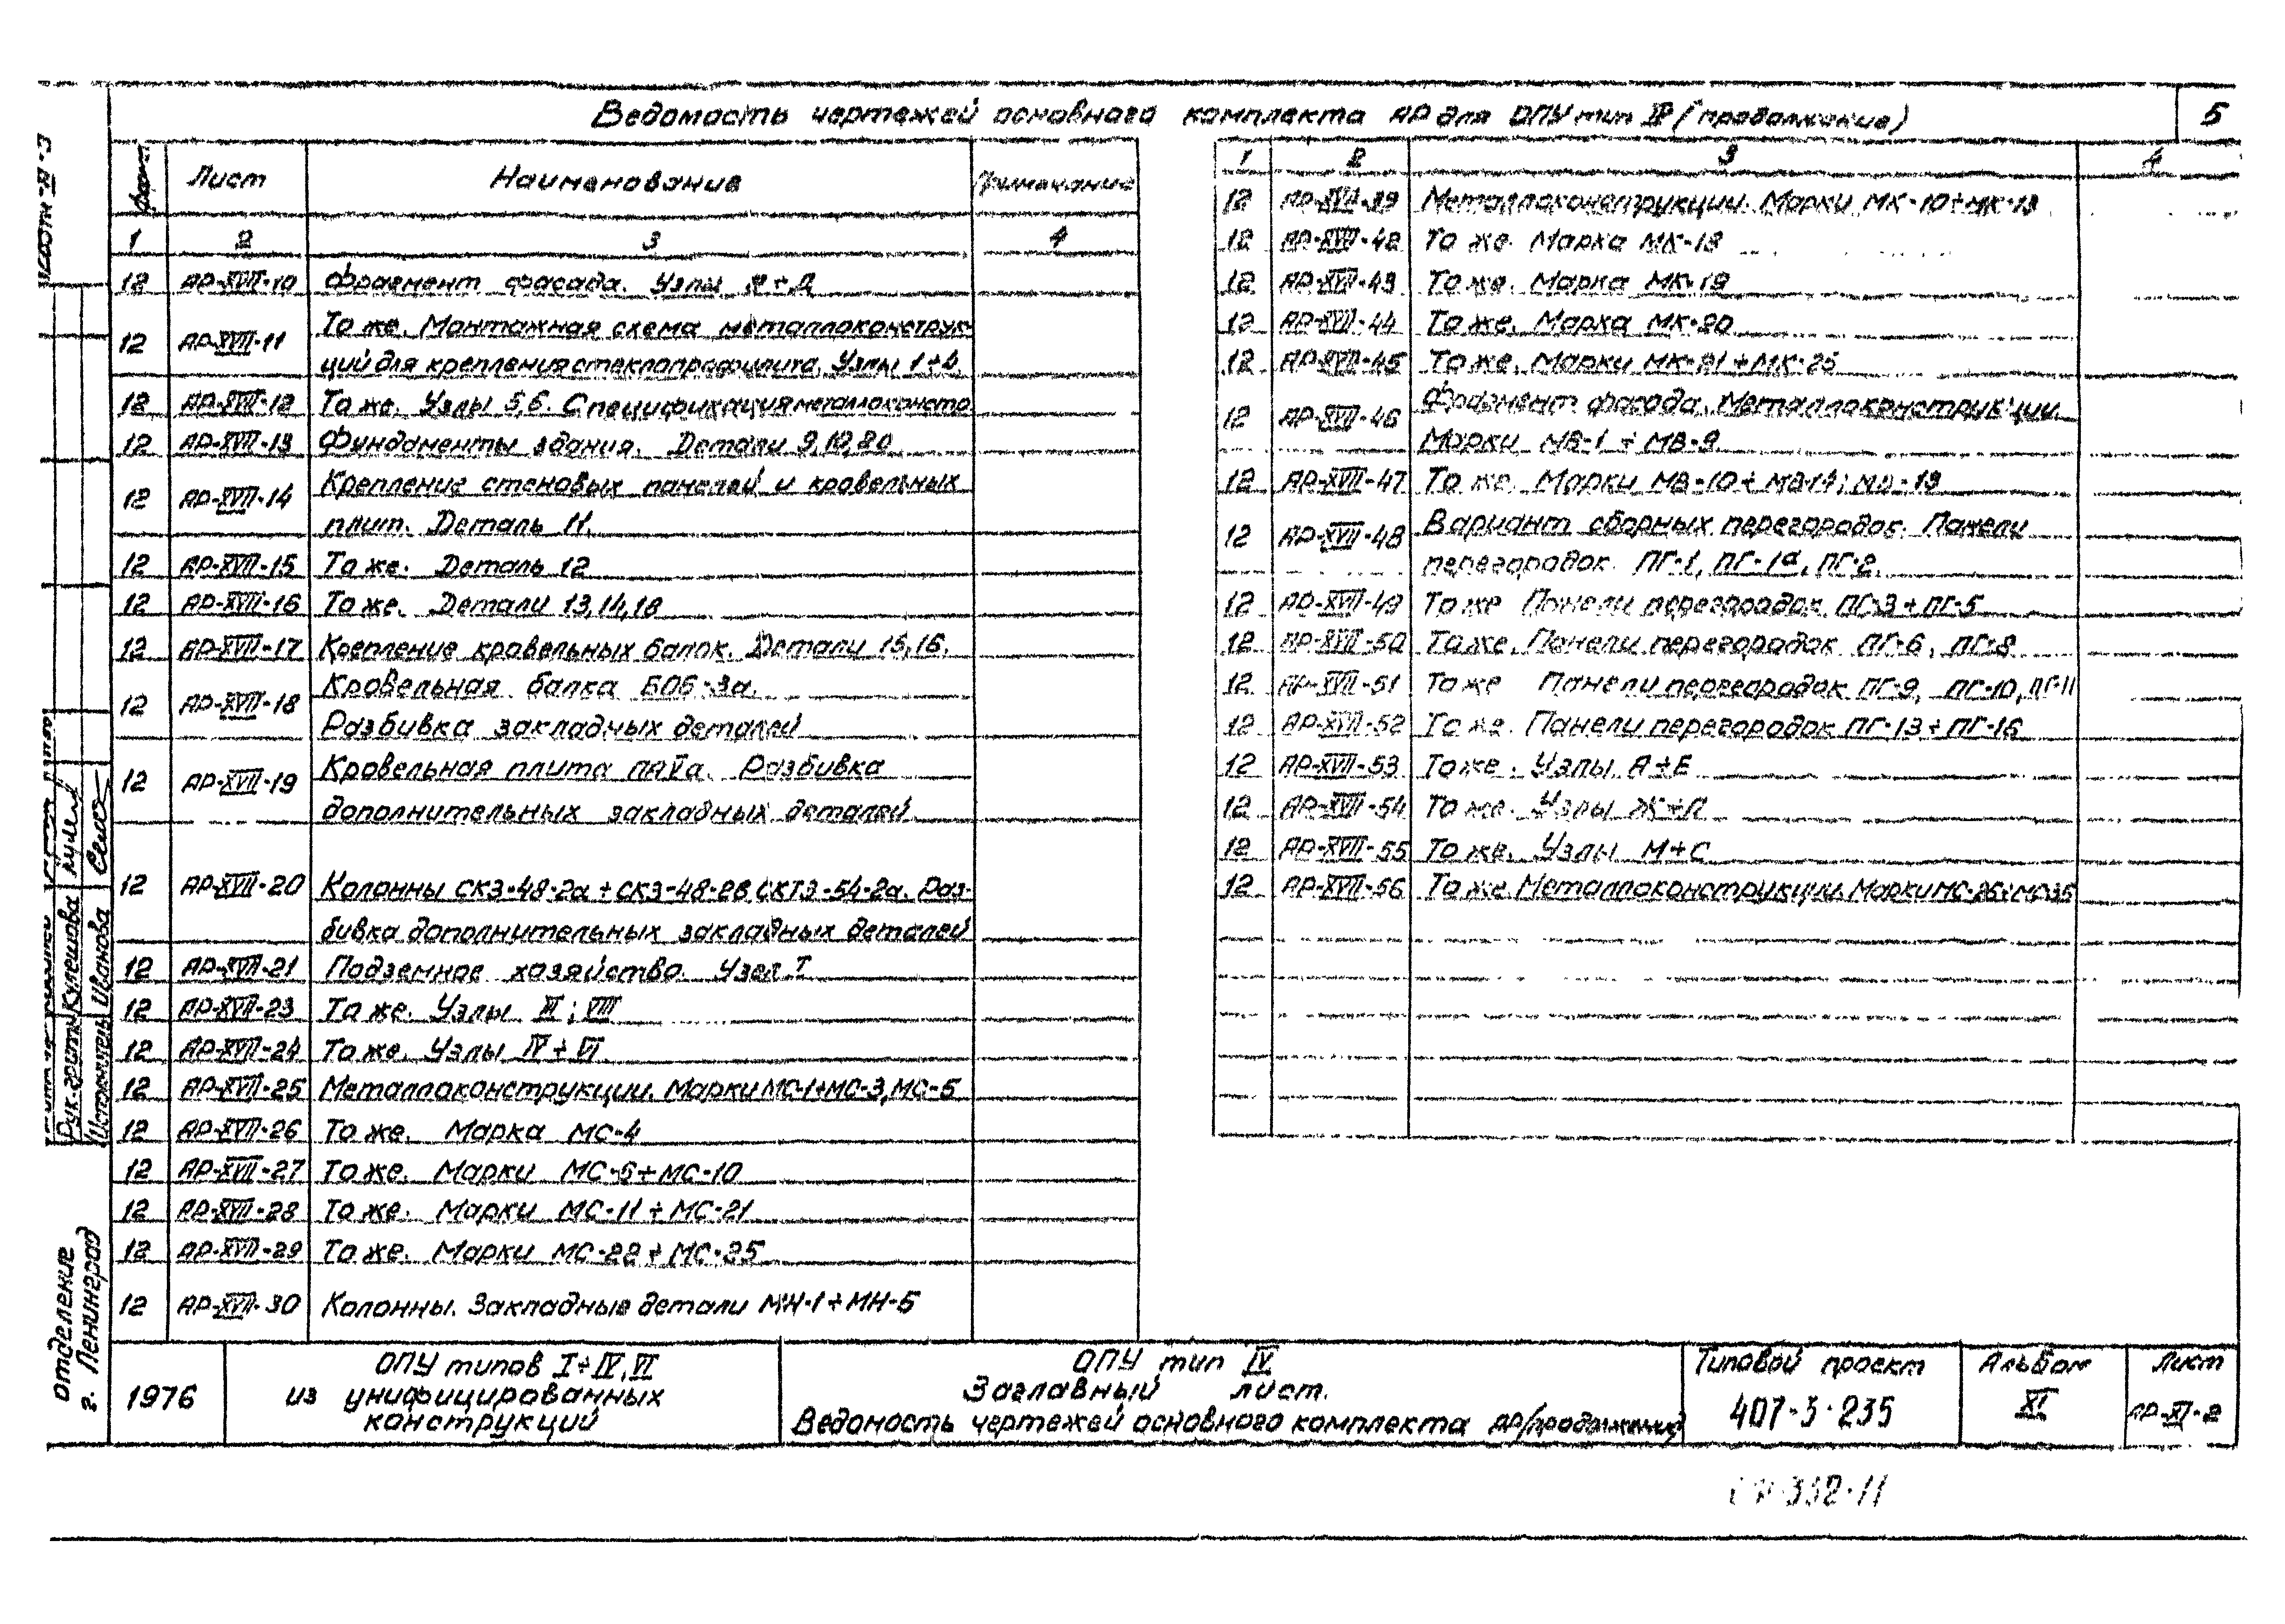 Ведомость чертежей основного комплекта АР для ОПУ тип IV (продолжение)
5
Формат Лист Наименование Примечание
1 2 3 4
12 АР-XVII-10 Фрагмент фасада. Узлы
12 АР-XVII-11 То же. Монтажная схема металлоконструк-
ций для крепления стеклопрофилита. Узлы 1÷4.
12 АР-XVII-12 То же. Узлы 5,6. Спецификация металлоконстр
12 АР-XVII-13 Фундаменты здания. Детали 9,10,20
12 АР-XVII-14 Крепление стеновых панелей и кровельных
плит. Деталь 11.
12 АР-XVII-15 То же. Деталь 12
12 АР-XVII-16 То же. Детали 13,14,18
12 АР-XVII-17 Крепление кровельных балок. Детали 15,16.
12 АР-XVII-18 Кровельная балка БО6-3а.
Разбивка закладных деталей
12 АР-XVII-19 Кровельная плита ПАVа. Разбивка
дополнительных закладных деталей.
12 АР-XVII-20 Колонны СК3-48-2а÷СК3-48-2в СКТ3-54-2а. Раз-
бивка дополнительных закладных деталей
12 АР-XVII-21 Подземное хозяйство. Узел I
12 АР-XVII-23 То же. Узлы III; VIII
12 АР-XVII-24 То же. Узлы IV÷VI
12 АР-XVII-25 Металлоконструкции. Марки МС-1÷МС-3, МС-5
12 АР-XVII-26 То же. Марка МС-4
12 АР-XVII-27 То же. Марки МС-6÷МС-10
12 АР-XVII-28 То же. Марки МС-11÷МС-21
12 АР-XVII-29 То же. Марки МС-22÷МС-25
12 АР-XVII-30 Колонны. Закладные детали МН-1÷МН-5
1 2 3 4
12 АР-XVII-39 Металлоконструкции. Марки МК-10÷МК-13
12 АР-XVII-42 То же. Марка МК-18
12 АР-XVII-43 То же. Марка МК-19
12 АР-XVII-44 То же. Марка МК-20
12 АР-XVII-45 То же. Марки МК-21÷МК-25
12 АР-XVII-46 Фрагмент фасада. Металлоконструкции
Марки МВ-1÷МВ-9
12 АР-XVII-47 То же. Марки МВ-10÷МВ-14; МД-13
12 АР-XVII-48 Вариант сборных перегородок. Панели
перегородок. ПГ-1, ПГ-1а, ПГ-2.
12 АР-XVII-49 То же Панели перегородок ПГ-3÷ПГ-5
12 АР-XVII-50 То же. Панели перегородок ПГ-6, ПГ-8
12 АР-XVII-51 То же Панели перегородок ПГ-9, ПГ-10, ПГ-11
12 АР-XVII-52 То же. Панели перегородок ПГ-13÷ПГ-16
12 АР-XVII-53 То же. Узлы А÷Е
12 АР-XVII-54 То же. Узлы Ж÷Л
12 АР-XVII-55 То же. Узлы М÷С
12 АР-XVII-56 То же. Металлоконструкции. Марки МС-26÷МС-35
Рук. группы Кулешова
Исполнитель Иванова
отделение
г. Ленинград
1976
ОПУ типов I÷IV, VI
из унифицированных
конструкций
ОПУ тип IV
Заглавный лист.
Ведомость чертежей основного комплекта АР (продолжение)
Типовой проект
407-3-235
Альбом
XI
Лист
АР-XI-2